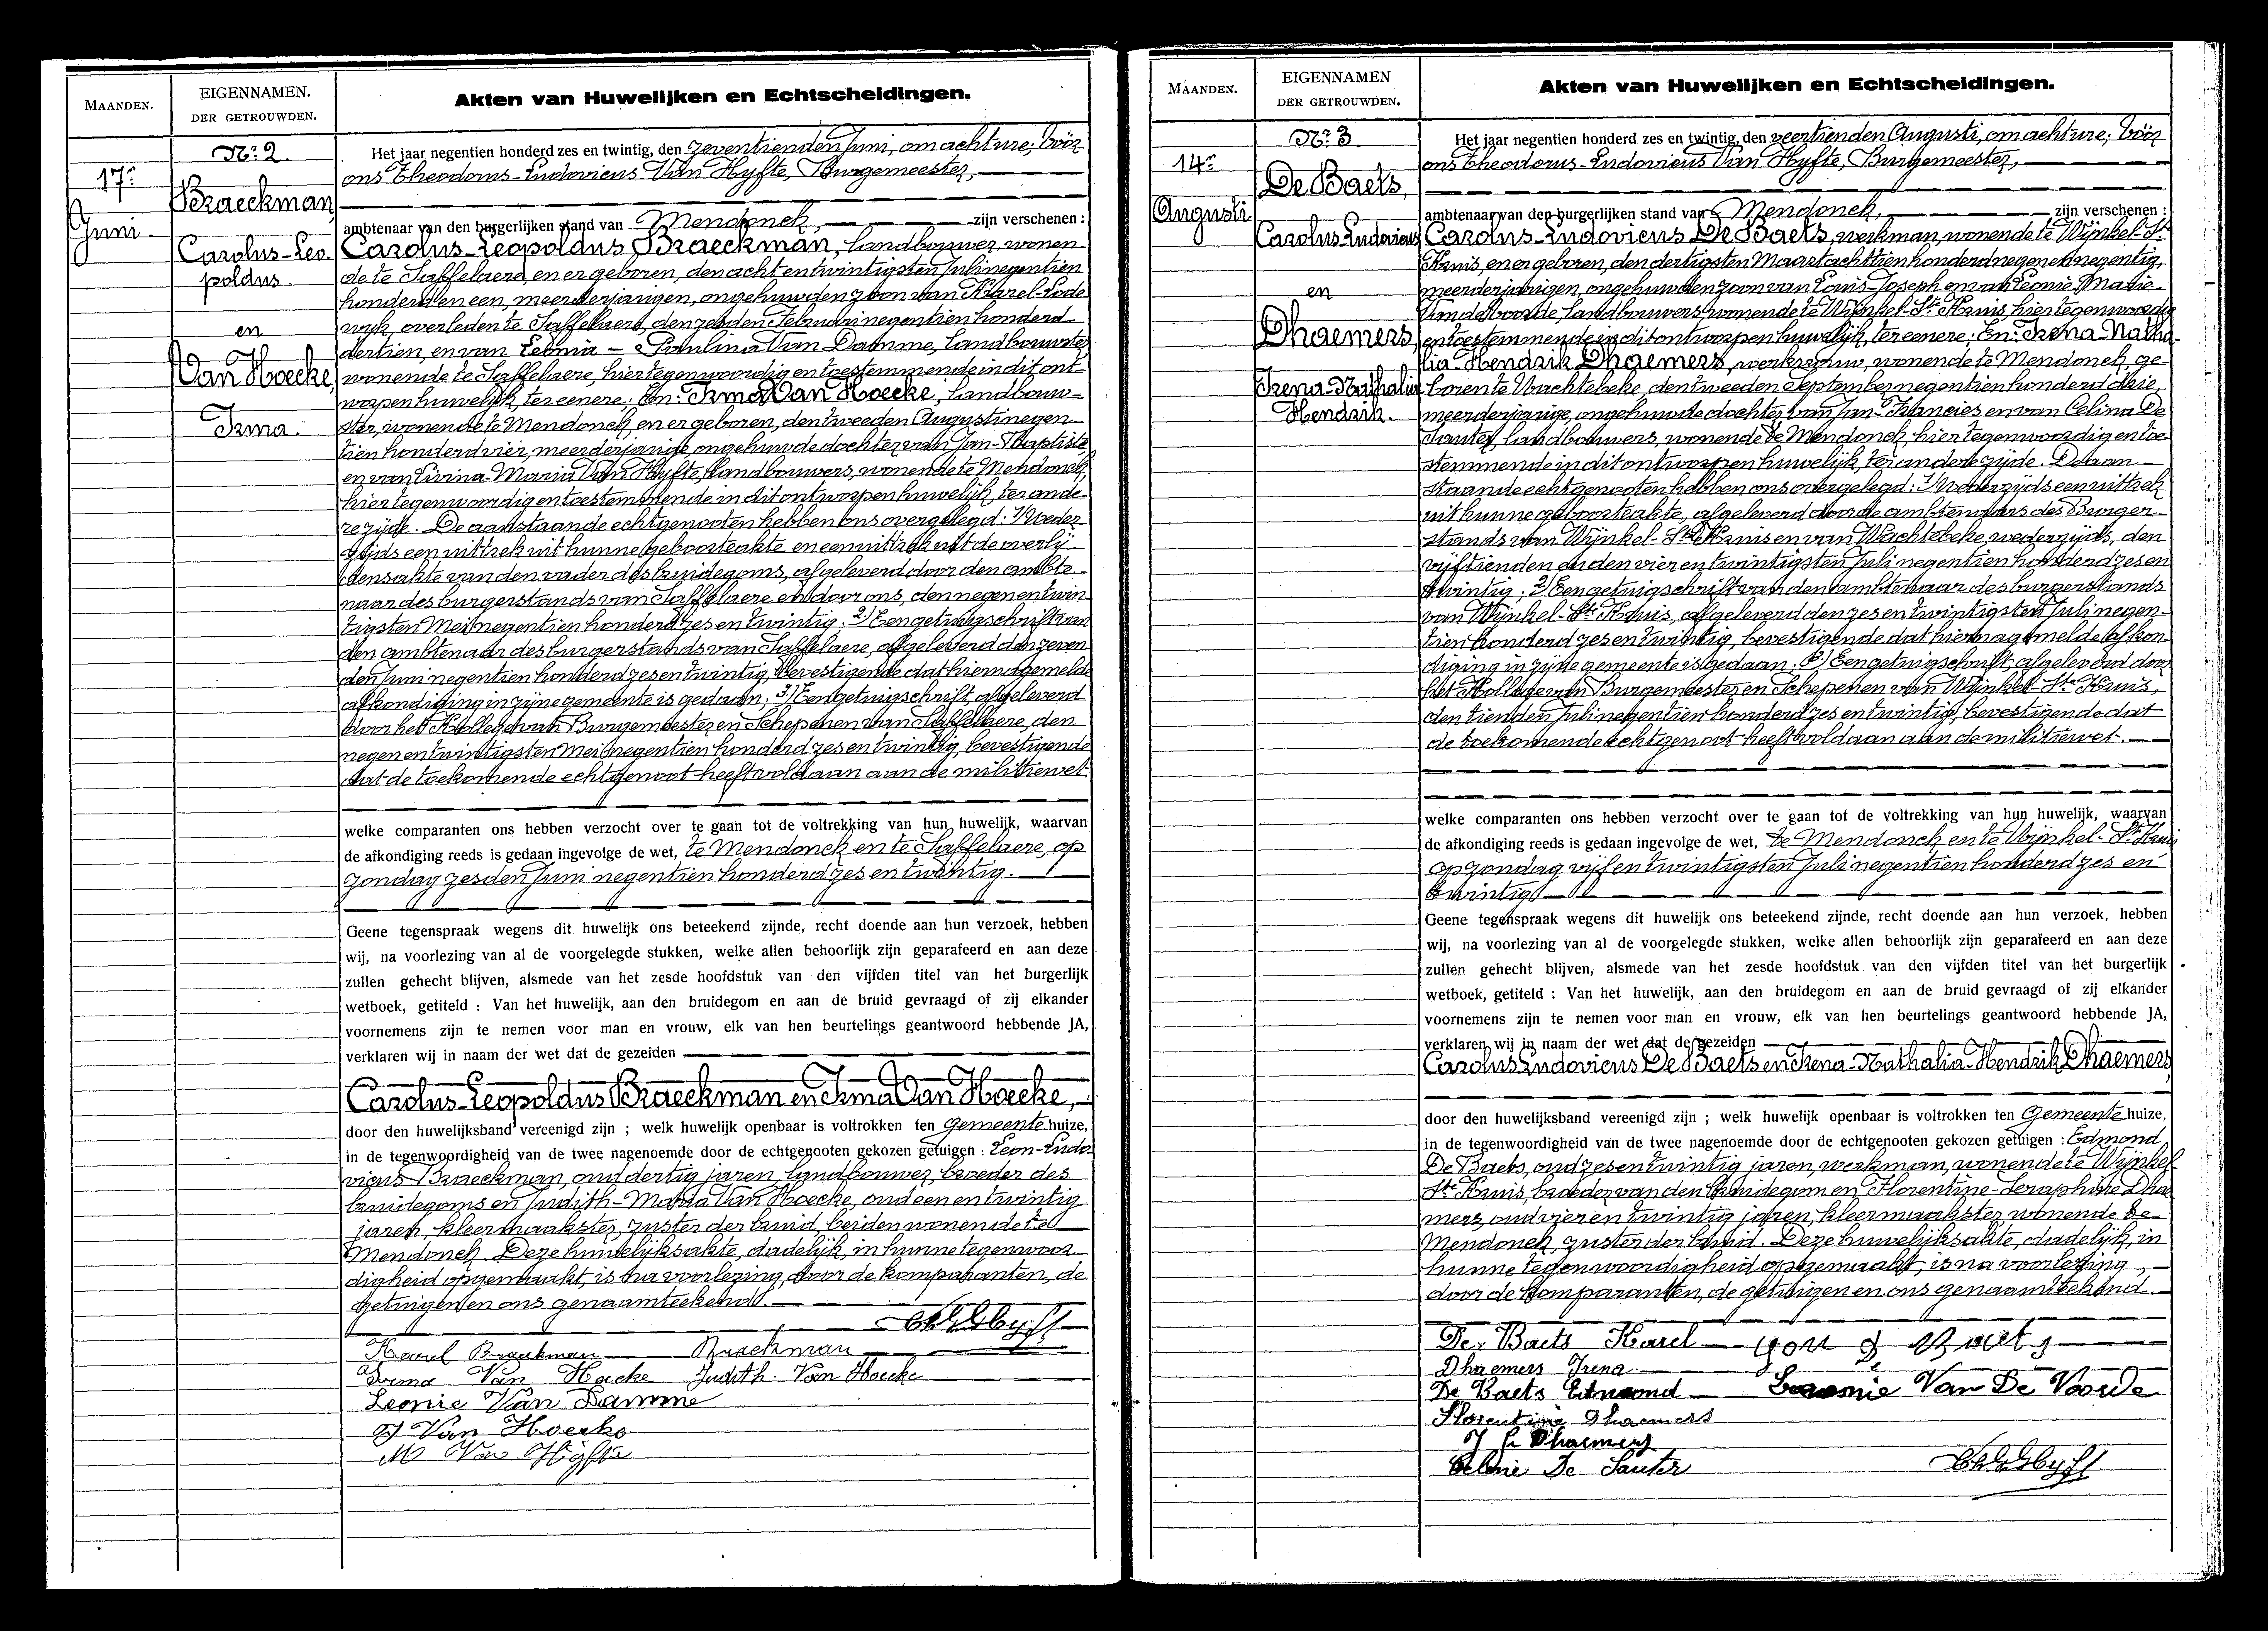 MAANDEN.
EIGENNAMEN.
DER GETROUWDEN.
Akten van Huwelijken en Echtscheidingen.
17e
Juni
No. 2
Braeckman
Carolus-Leo-
poldus
en
Van Hoecke,
Irma.
Het jaar negentien honderd zes en twintig, den zeventienden Juni, om acht ure; vóór
ons Theodorus-Ludovicus Van Hyfte, Burgemeester,
ambtenaar van den burgerlijken stand van Mendonck, zijn verschenen :
Carolus-Leopoldus Braeckman, landbouwer, wonen-
de te Saffelaere, en er geboren, den acht en twintigsten Juli negentien
honderd en een, meerderjarigen, ongehuwden zoon van Karel-Lode-
wijk, overleden te Saffelaere, den zesden Februari negentien honderd
dertien, en van Leonia-Paulina Van Damme, landbouwster
wonende te Saffelaere, hier tegenwoordig en toestemmende in dit ont-
worpen huwelijk, ter eenere; En: Irma Van Hoecke, landbouw-
ster, wonende te Mendonck, en er geboren, den tweeden Augusti negen-
tien honderd vier, meerderjarige, ongehuwde dochter van Jan-Baptiste
en van Livina-Maria Van Hyfte, landbouwers, wonende te Mendonck,
hier tegenwoordig en toestemmende in dit ontworpen huwelijk, ter ande-
re zijde. De aanstaande echtgenooten hebben ons overgelegd: 1/ Weder-
zijds een uittrek uit hunne geboorteakte en een uittrek uit de overlij-
densakte van den vader des bruidegoms, afgeleverd door den ambte-
naar des burgerstands van Saffelaere en door ons, den negen en twin-
tigsten Mei negentien honderd zes en twintig. 2) Een getuigschrift van
den ambtenaar des burgerstands van Saffelaere, afgeleverd den zeven-
den Juni negentien honderd zes en twintig, bevestigende dat hiernagemelde
afkondiging in zijne gemeente is gedaan; 3) Een getuigschrift, afgeleverd
door het Kollege van Burgemeester en Schepenen van Saffelaere, den
negen en twintigsten Mei negentien honderd zes en twintig, bevestigende
dat de toekomende echtgenoot heeft voldaan aan de militiewet.
welke comparanten ons hebben verzocht over te gaan tot de voltrekking van hun huwelijk, waarvan
de afkondiging reeds is gedaan ingevolge de wet, te Mendonck en te Saffelaere, op
zondag zesden Juni negentien honderd zes en twintig.
Geene tegenspraak wegens dit huwelijk ons beteekend zijnde, recht doende aan hun verzoek, hebben
wij, na voorlezing van al de voorgelegde stukken, welke allen behoorlijk zijn geparafeerd en aan deze
zullen gehecht blijven, alsmede van het zesde hoofdstuk van den vijfden titel van het burgerlijk
wetboek, getiteld : Van het huwelijk, aan den bruidegom en aan de bruid gevraagd of zij elkander
voornemens zijn te nemen voor man en vrouw, elk van hen beurtelings geantwoord hebbende JA,
verklaren wij in naam der wet dat de gezeiden
Carolus-Leopoldus Braeckman en Irma Van Hoecke,
door den huwelijksband vereenigd zijn ; welk huwelijk openbaar is voltrokken ten Gemeentehuize,
in de tegenwoordigheid van de twee nagenoemde door de echtgenooten gekozen getuigen : Leon-Ludo-
vicus Braeckman, oud dertig jaren, landbouwer, broeder des
bruidegoms en Judith-Maria Van Hoecke, oud een en twintig
jaren, kleermaakster, zuster der bruid, beiden wonende te
Mendonck. Deze huwelijksakte, dadelijk, in hunne tegenwoor-
digheid opgemaakt, is na voorlezing, door de komparanten, de
getuigen en ons genaamteekend.
Karel Braeckman Braeckman
Irma Van Hoecke Judith. Van Hoecke
Leonie Van Damme
J Van Hoecke
M Van Hyfte
MAANDEN.
EIGENNAMEN
DER GETROUWDEN.
Akten van Huwelijken en Echtscheidingen.
14e
Augusti
No. 3
De Baets,
Carolus-Ludovicus
en
Dhaemers,
Irena-Nathalia
Hendrik.
Het jaar negentien honderd zes en twintig, den veertienden Augusti, om acht ure; vóór
ons Theodorus-Ludovicus Van Hyfte, Burgemeester,
ambtenaar van den burgerlijken stand van Mendonck, zijn verschenen :
Carolus-Ludovicus De Baets, werkman, wonende te Wijnkel-St.
Kruis, en er geboren, den dertigsten Maart achttien honderd negen en negentig,
meerderjarigen, ongehuwden zoon van Louis-Joseph en van Leonie Marie
Vande Voorde, landbouwers wonende te Wijnkel-Ste Kruis, hier tegenwoordig
en toestemmende in dit ontworpen huwelijk, ter eenere; En: Irena-Natha-
lia-Hendrik Dhaemers, werkvrouw, wonende te Mendonck, ge-
boren te Wachtebeke, den tweeden September negentien honderd drie,
meerderjarige, ongehuwde dochter van Jan-Francies en van Celina De
Sauter, landbouwers, wonende te Mendonck, hier tegenwoordig en toe-
stemmende in dit ontworpen huwelijk, ter andere zijde. De aan-
staande echtgenooten hebben ons overgelegd: 1/ Wederzijds een uittrek
uit hunne geboorteakte, afgeleverd door de ambtenaars des Burger-
stands van Wijnkel-Ste Kruis en van Wachtebeke, wederzijds, den
vijftienden en den vier en twintigsten Juli negentien honderd zes en
twintig; 2) Een getuigschrift van den ambtenaar des burgerstands
van Wijnkel-Ste Kruis, afgeleverd den zes en twintigsten Juli negen-
tien honderd zes en twintig, bevestigende dat hiernagemelde afkon-
diging in zijne gemeente is gedaan; 3) Een getuigschrift, afgeleverd door
het Kollege van Burgemeester en Schepenen van Wijnkel-Ste Kruis,
den tienden Juli negentien honderd zes en twintig, bevestigende dat
de toekomende echtgenoot heeft voldaan aan de militiewet.
welke comparanten ons hebben verzocht over te gaan tot de voltrekking van hun huwelijk, waarvan
de afkondiging reeds is gedaan ingevolge de wet, te Mendonck en te Wijnkel-Ste Kruis
op zondag vijf en twintigsten Juli negentien honderd zes en
twintig
Geene tegenspraak wegens dit huwelijk ons beteekend zijnde, recht doende aan hun verzoek, hebben
wij, na voorlezing van al de voorgelegde stukken, welke allen behoorlijk zijn geparafeerd en aan deze
zullen gehecht blijven, alsmede van het zesde hoofdstuk van den vijfden titel van het burgerlijk
wetboek, getiteld : Van het huwelijk, aan den bruidegom en aan de bruid gevraagd of zij elkander
voornemens zijn te nemen voor man en vrouw, elk van hen beurtelings geantwoord hebbende JA,
verklaren wij in naam der wet dat de gezeiden
Carolus Ludovicus De Baets en Irena-Nathalia-Hendrik Dhaemers
door den huwelijksband vereenigd zijn ; welk huwelijk openbaar is voltrokken ten Gemeentehuize,
in de tegenwoordigheid van de twee nagenoemde door de echtgenooten gekozen getuigen : Edmond
De Baets, oud zes en twintig jaren, werkman, wonende te Wijnkel
Ste Kruis, broeder van den bruidegom en Florentine-Seraphine Dhae-
mers, oud vier en twintig jaren, kleermaakster wonende te
Mendonck, zuster der bruid. Deze huwelijksakte, dadelijk, in
hunne tegenwoordigheid opgemaakt, is na voorlezing,
door de komparanten, de getuigen en ons genaamteekend.
De Baets Karel
Dhaemers Irena
De Baets Edmond Leonie Van De Voorde
Florentine Dhaemers
J F Dhaemers
Celenie De Sauter